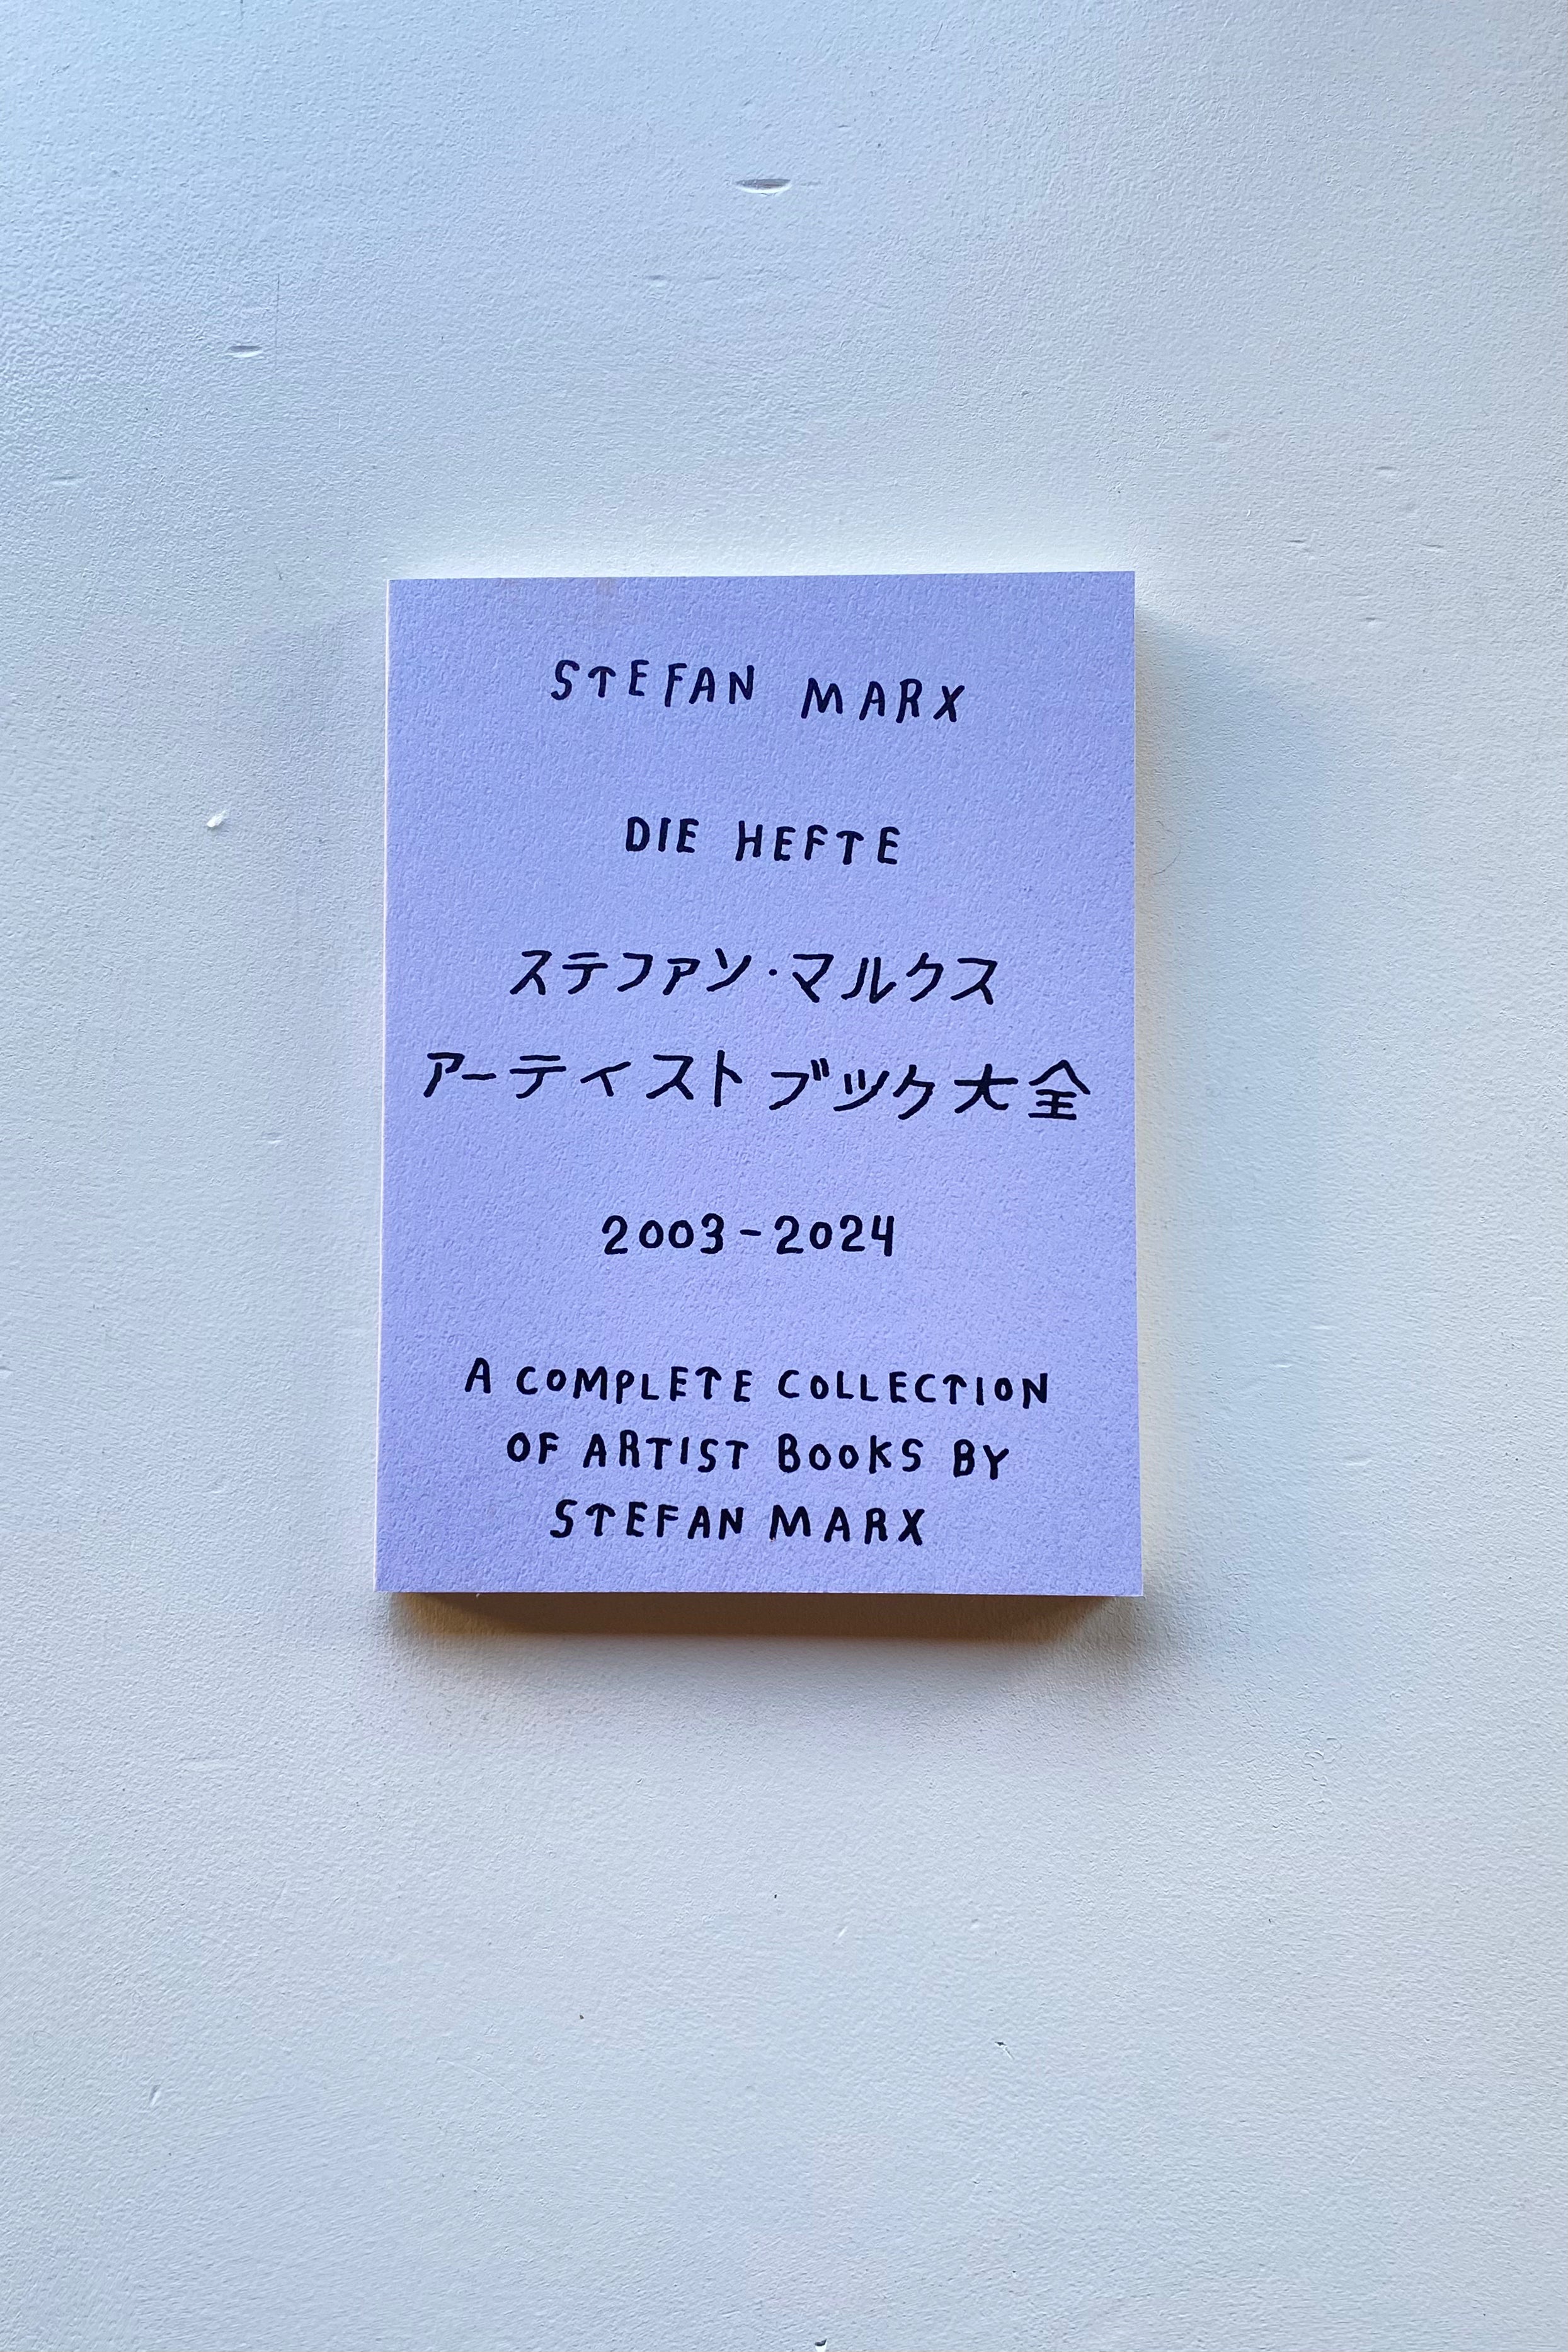 STEFAN MARX
DIE HEFTE
ステファン・マルクス
アーティストブック大全
2003-2024
A COMPLETE COLLECTION
OF ARTIST BOOKS BY
STEFAN MARX